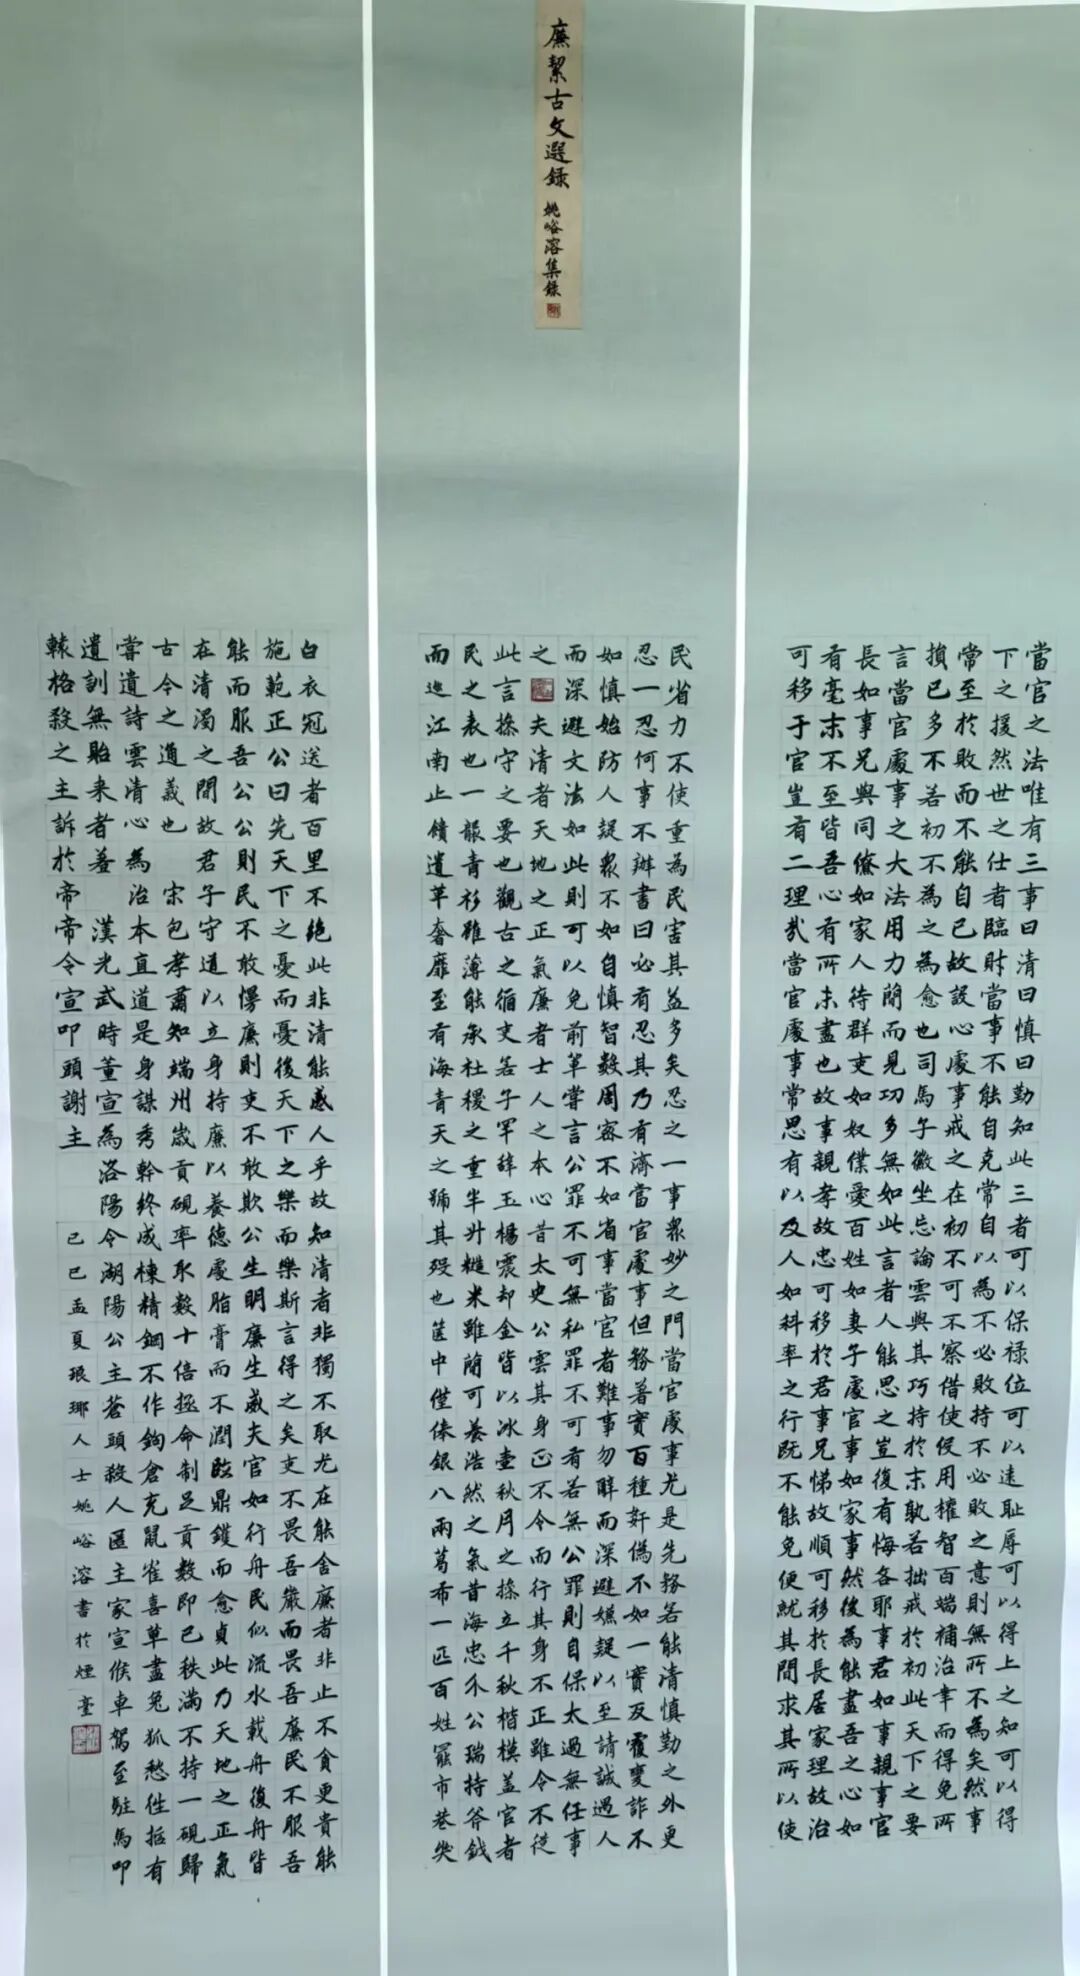 廉絜古文選録
姚峪溶集錄
當官之法唯有三事曰清曰慎曰勤知此三者可以保祿位可以遠恥辱可以得上之知可以得
下之援然世之仕者臨財當事不能自克常自以為不必敗持不必敗之意則無所不為矣然事
常至於敗而不能自已故設心處事戒之在初不可不察借使役用權智百端補治幸而得免所
損已多不若初不為之為愈也司馬子徽坐忘論雲與其巧持於末孰若拙戒於初此天下之要
言當官處事之大法用力簡而見功多無如此言者人能思之豈復有悔吝耶事君如事親事官
長如事兄與同僚如家人待群吏如奴僕愛百姓如妻子處官事如家事然後為能盡吾之心如
有毫末不至皆吾心有所未盡也故事親孝故忠可移於君事兄悌故順可移於長居家理故治
可移于官豈有二理哉當官處事常思有以及人如科率之行既不能免便就其間求其所以使
民省力不使重為民害其益多矣忍之一事衆妙之門當官處事尤是先務若能清慎勤之外更
忍一忍何事不辦書曰必有忍其乃有濟當官處事但務著實百種奸偽不如一實反覆變詐不
如慎始防人疑衆不如自慎智數周密不如省事當官者難事勿辭而深避嫌疑以至請誠遇人
而深避文法如此則可以免前輩嘗言公罪不可無私罪不可有若無公罪則自保太過無任事
之夫清者天地之正氣廉者士人之本心昔太史公雲其身正不令而行其身不正雖令不從
此言操守之要也觀古之循吏若子罕辭玉楊震却金皆以冰壺秋月之操立千秋楷模蓋官者
民之表也一服青衫雖薄能承社稷之重半升糙米雖簡可養浩然之氣昔海忠介公瑞持斧鉞
而巡江南止饋遺革奢靡至有海青天之號其歿也篋中僅俸銀八兩葛布一匹百姓罷市巷哭
白衣冠送者百里不絕此非清能感人乎故知清者非獨不取尤在能舍廉者非止不貪更貴能
施範正公曰先天下之憂而憂後天下之樂而樂斯言得之矣吏不畏吾嚴而畏吾廉民不服吾
能而服吾公公則民不敢慢廉則吏不敢欺公生明廉生威夫官如行舟民似流水載舟復舟皆
在清濁之間故君子守道以立身持廉以養德處脂膏而不潤臨鼎鑊而愈貞此乃天地之正氣
古今之通義也 宋包孝肅知端州歲貢硯率取數十倍拯命制足貢數即已秩滿不持一硯歸
嘗遺詩雲清心為治本直道是身謀秀幹終成棟精鋼不作鉤倉充鼠雀喜草盡兔狐愁往哲有
遺訓無貽来者羞 漢光武時董宣為洛陽令湖陽公主蒼頭殺人匿主家宣候車駕至駐馬叩
轅格殺之主訴於帝帝令宣叩頭謝主
己巳孟夏琅琊人士姚峪溶書於煙臺